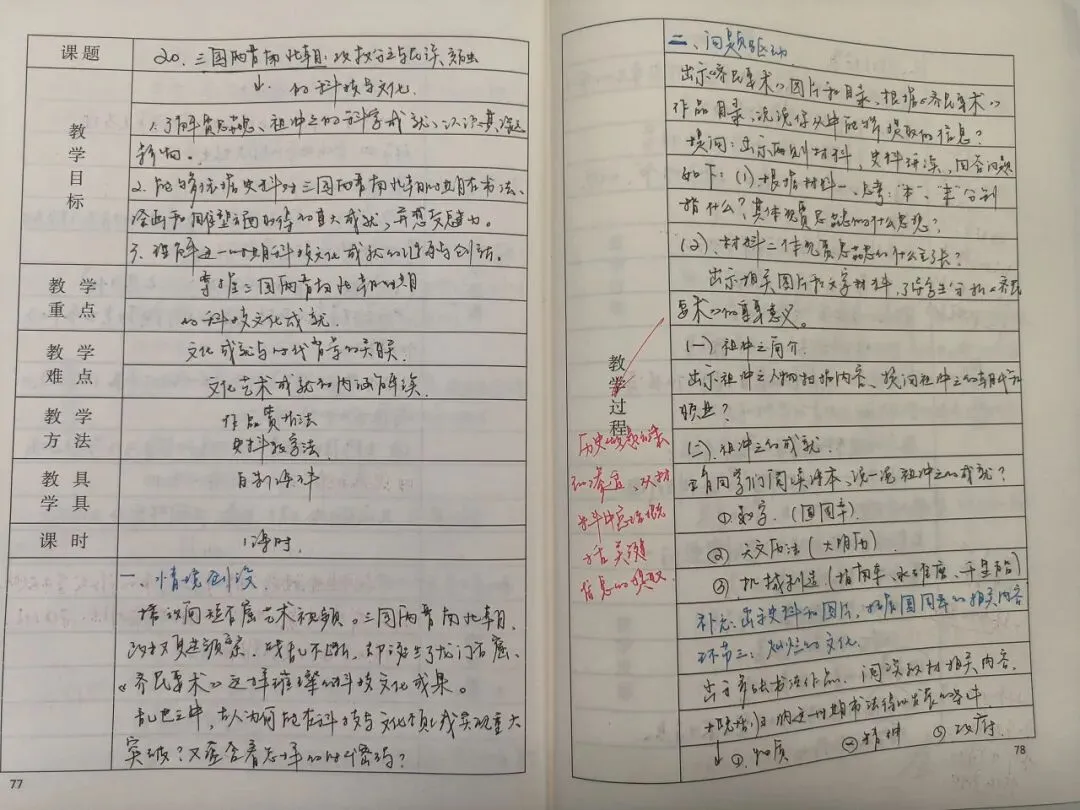 课题
20. 三国两晋南北朝:政权分立与民族交融
的科技与文化.
教学目标
1. 了解贾思勰、祖冲之的科学成就、认识其深远
影响。
2. 能够依据史料对三国两晋南北朝时期在书法、
绘画和雕塑方面取得的重大成就,
3. 理解这一时期科技文化成就的 与创新。
教学重点
掌握三国两晋南北朝时期
的科技文化成就.
教学难点
文化成就与时代背景的关联.
文化艺术成就的内涵解读
教学方法
作品赏析法
史料教学法.
教具学具
自制课件
课时
1课时.
一、情境创设
播放河 石窟艺术视频。三国两晋南北朝,
政权更迭频繁、战乱不断,却诞生了龙门石窟、
《齐民要术》这样璀璨的科技文化成果。
乱世之中,古人为何能在科技与文化领域实现重大
突破?又蕴含着怎样的时代密码?
77
教学过程
二、问题驱动
出示《齐民要术》图片和目录,根据《齐民要术》
作品目录,说说你从中能够提取的信息?
提问:出示两则材料,史料研读,回答问题
如下:(1)根据材料一,思考:"本"、"末"分别
指什么?其体现贾思勰的什么思想?
(2)、材料二体现贾思勰的什么主张?
出示相关图片和文字材料,引导学生分析《齐民
要术》的 意义。
(一)祖冲之简介.
出示祖冲之人物 内容、提问祖冲之的朝代和
职业?
(二)、祖冲之的成就.
请同学们阅读课本,说一说祖冲之的成就?
① 数学.(圆周率).
② 天文历法(大明历)
③、机械制造(指南车、水碓磨、千里船)
补充:出示史料和图片,拓展圆周率的相关内容
环节三:灿烂的文化.
出示 书法作品. 阅读教材相关内容.
归纳这一时期书法得以发展的条件
↓ ①.物质 ②精神 ③政府.
历史 题 法
的渗透、从材
料中 概
括 关键
信息的提取
78